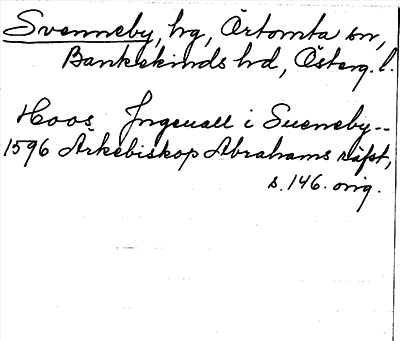 Svenneby, hg, Örtomta sn,
Bankekinds hd, Österg. l.
Hoos Jngeuall i Sueneby--
1596 Ärkebiskop Abrahams räfst,
s. 146. orig.